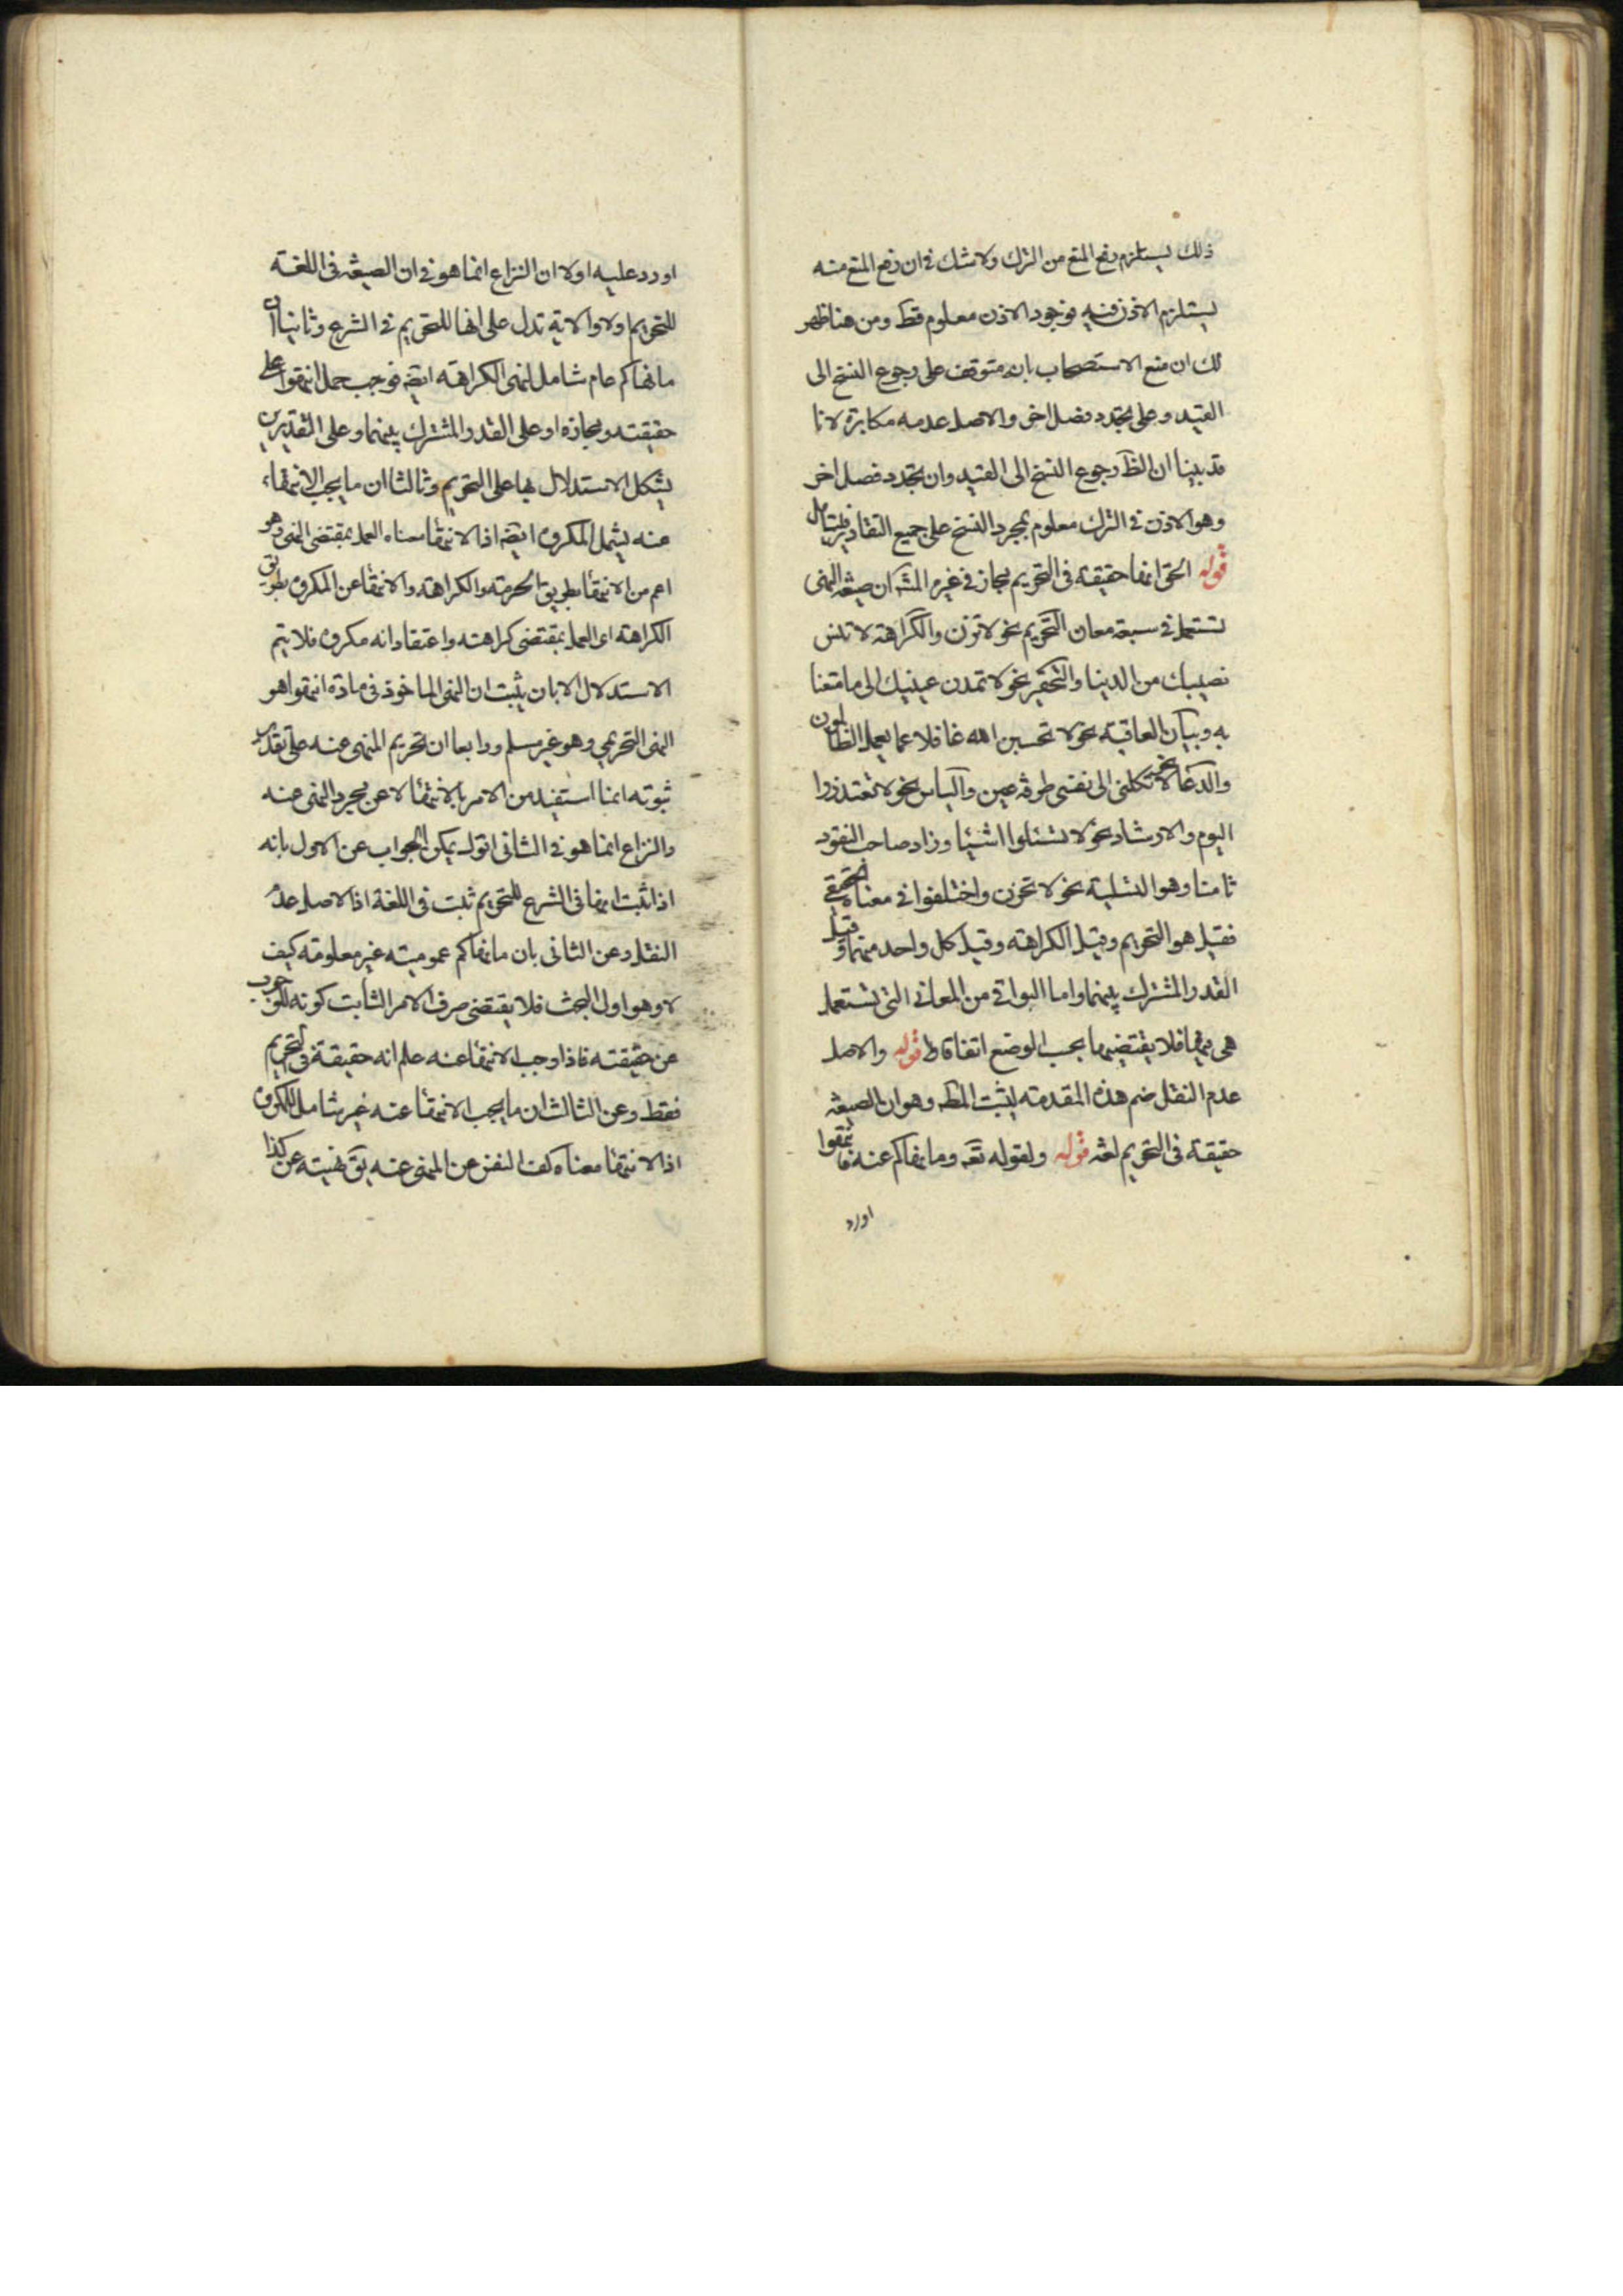 ذلك يستلزم رفع المنع من الترك ولا شك في ان رفع المنع منه
يستلزم الاذن فيه فوجود الاذن معلوم قط ومن هنا ظهر
لك ان منع الاستصحاب بانه متوقف على رجوع النسخ الى
القيد وعلى تجدد فصل اخر والاصل عدمه مكابرة لانا
قد بينا ان الظ رجوع النسخ الى القيد وان تجدد فصل اخر
وهو الاذن في الترك معلوم بمجرد النسخ على جميع التقادير فليتامل
قوله الحق انها حقيقة في التحريم مجاز في غيره المش ان صيغة النهى
تستعمل في سبعة معان التحريم نحو لا تزن والكراهة لا تنس
نصيبك من الدنيا والتحقير نحو لا تمدن عينيك الى ما متعنا
به وبيان العاقبة نحو لا تحسبن الله غافلا عما يعمل الظالمون
والدعا نحو لا تكلنى الى نفسى طرفة عين والياس نحو لا تعتذروا
اليوم والارشاد نحو لا تسئلوا اشيا وزاد صاحب النقود
ثامنا وهو التسلية نحو لا تحزن واختلفوا في معناه الحقيقي
فقيل هو التحريم وقيل الكراهة وقيل كل واحد منهما وقيل
القدر المشترك بينهما واما البواقي من المعاني التى تستعمل
هى فيها فلا يقتضيها بحسب الوضع اتفاقا قوله والاصل
عدم النقل ضم هذه المقدمة ليثبت المط وهو ان الصيغة
حقيقة في التحريم لغة قوله ولقوله تع وما نهاكم عنه فانتهوا
اورد
اورد عليه اولا ان النزاع انما هو في ان الصيغة في اللغة
للتحريم اولا والاية تدل على انها للتحريم في الشرع وثانيا ان
ما نهاكم عام شامل لنهى الكراهة ايضه فوجب حمل انتهوا على
حقيقته ومجازه او على القدر المشترك بينهما وعلى التقديرين
يشكل الاستدلال بها على التحريم وثالثا ان ما يجب الانتهاء
عنه يشمل المكروه ايضه اذ الانتهاء معناه العمل بمقتضى النهى وهو
اعم من الانتهاء بطريق الحرمة والكراهة والانتهاء عن المكروه بطريق
الكراهة اى العمل بمقتضى كراهته واعتقاد انه مكروه فلا يتم
الاستدلال الا بان يثبت ان النهى الماخوذ في مادة انتهوا هو
النهى التحريمي وهو غير مسلم ورابعا ان تحريم المنهى عنه على تقدير
ثبوته انما استفيد من الامر بالانتهاء لا عن مجرد النهى عنه
والنزاع انما هو في الثانى اقول يمكن الجواب عن الاول بانه
اذا ثبت انها في الشرع للتحريم ثبت في اللغة اذ الاصل عدم
النقل وعن الثانى بان ما نهاكم عموميته غير معلومة كيف
لا وهو اول البحث فلا يقتضى صرف الامر الثابت كونه للوجوب
عن حقيقته فاذا وجب الانتهاء عنه علم انه حقيقة في التحريم
فقط وعن الثالث ان ما يجب الانتهاء عنه غير شامل للمكروه
اذ الانتهاء معناه كف النفس عن المنهى عنه يق نهيته عن كذا